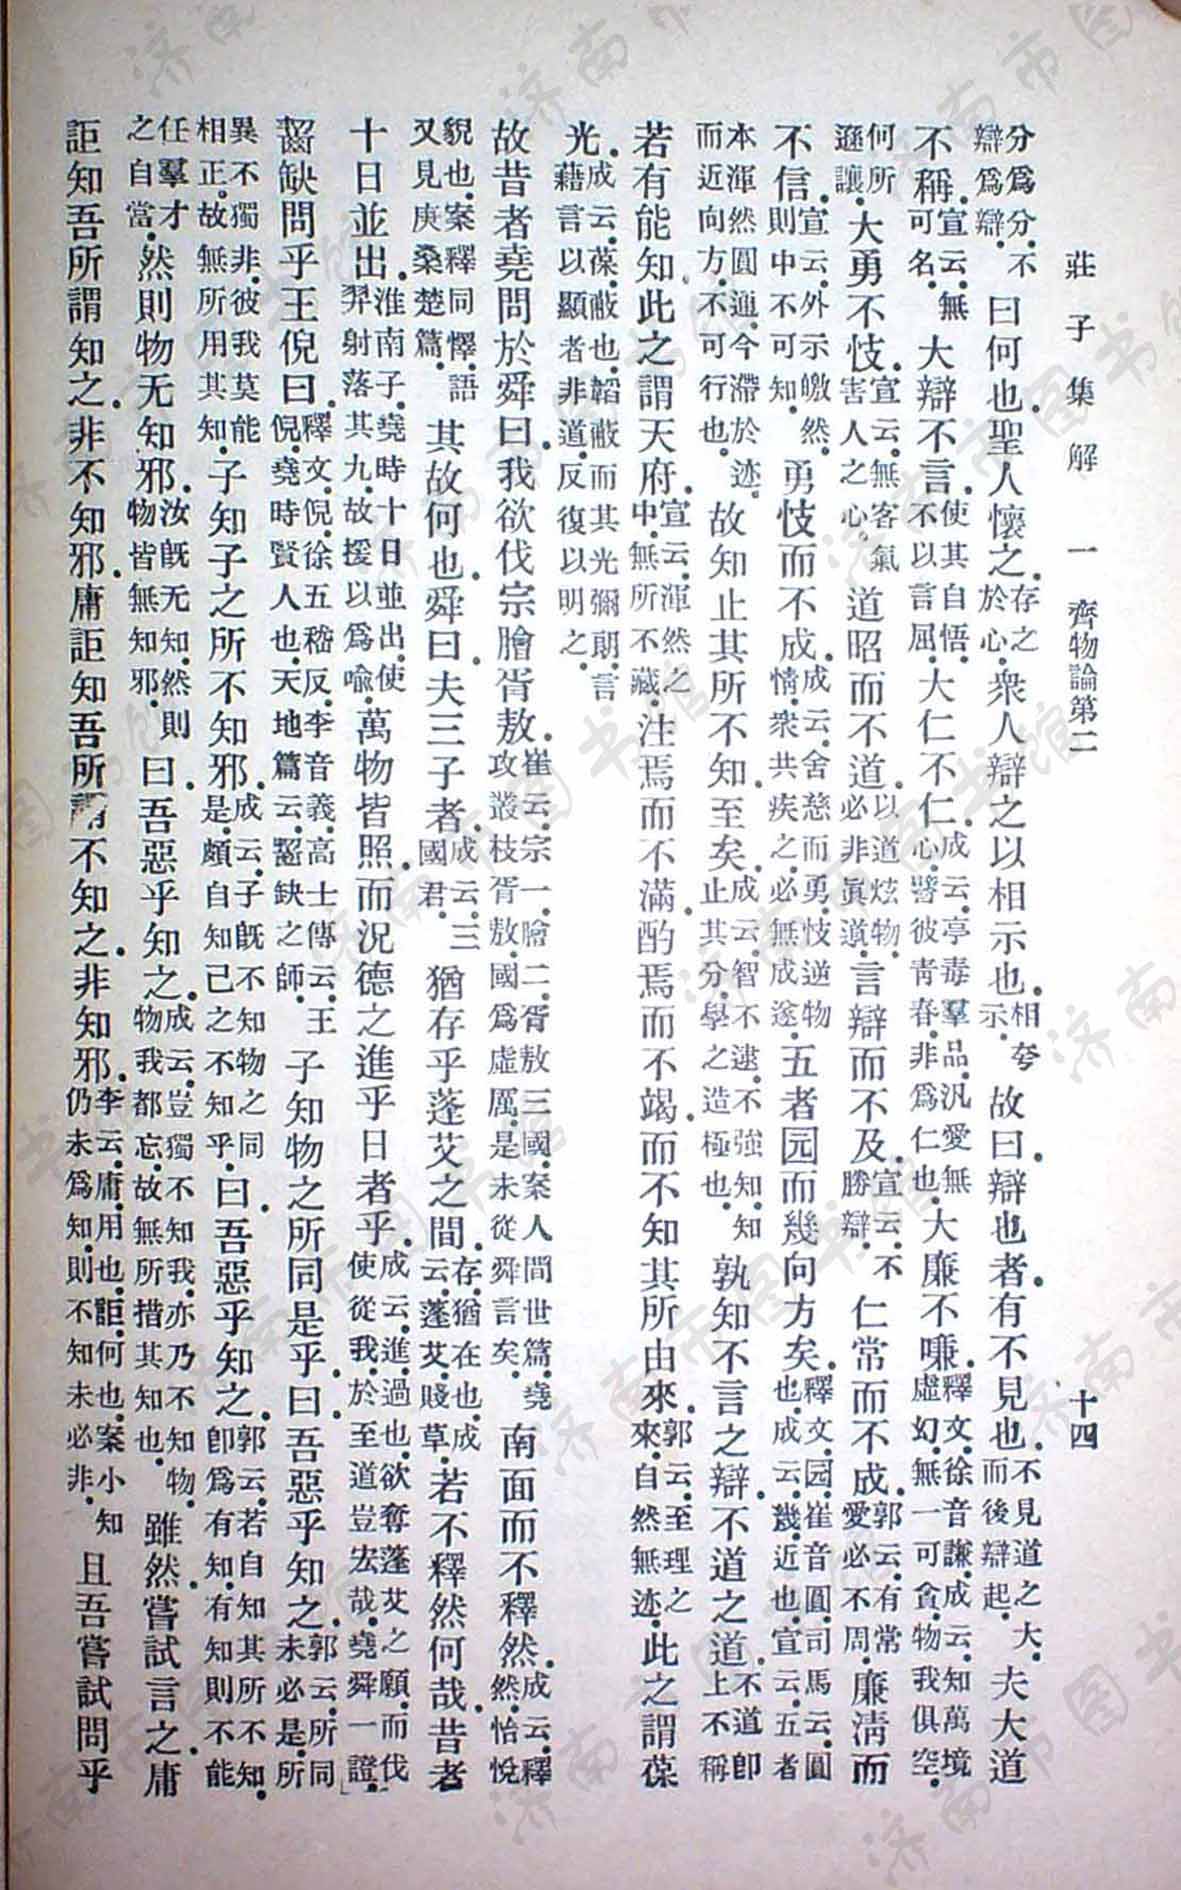 莊子集解　一　齊物論第二　十四
分爲分.不辯爲辯.曰何也.聖人懷之.存之於心.衆人辯之以相示也.相夸示.故曰.辯也者.有不見也.不見道之大.而後辯起.夫大道
不稱.宣云.無可名.大辯不言.使其自悟.不以言屈.大仁不仁.成云.亭毒羣品.汎愛無心.譬彼靑春.非爲仁也.大廉不嗛.釋文.徐音謙.成云.知萬境虛幻.無一可貪.物我俱空.
何所遜讓.大勇不忮.宣云.無客氣害人之心.道昭而不道.以道炫物.必非眞道.言辯而不及.宣云.不勝辯.仁常而不成.郭云.有常愛必不周.廉淸而
不信.宣云.外示皦然.則中不可知.勇忮而不成.成云.舍慈而勇.忮逆物情.衆共疾之.必無成遂.五者园而幾向方矣.釋文.园.崔音圓.司馬云.圓也.成云.幾.近也.宣云.五者
本渾然圓通.今滯於迹.而近向方.不可行也.故知止其所不知.至矣.成云.智不逮.不強知.知止其分.學之造極也.孰知不言之辯.不道之道.不道卽上不稱
若有能知.此之謂天府.宣云.渾然之中.無所不藏.注焉而不滿.酌焉而不竭.而不知其所由來.郭云.至理之來.自然無迹.此之謂葆
光.成云.葆.蔽也.韜蔽而其光彌朗.言藉言以顯者非道.反復以明之.
故昔者堯問於舜曰.我欲伐宗膾胥敖.崔云.宗一.膾二.胥敖三國.案人間世篇.堯攻叢枝胥敖.國爲虛厲.是未從舜言矣.南面而不釋然.成云.釋然.怡悅
貌也.案釋同懌.語又見庚桑楚篇.其故何也.舜曰.夫三子者.成云.三國君.猶存乎蓬艾之間.存.猶在也.成云.蓬艾.賤草.若不釋然何哉.昔者
十日並出.淮南子.堯時十日並出.使羿射落其九.故援以爲喩.萬物皆照.而況德之進乎日者乎.成云.進.過也.欲奪蓬艾之願.而伐使從我.於至道豈宏哉.堯舜一證.
齧缺問乎王倪曰.釋文.倪.徐五嵇反.李音義.高士傳云.王倪.堯時賢人也.天地篇云.齧缺之師.子知物之所同是乎.曰.吾惡乎知之.郭云.所同未必是.所
異不獨非.彼我莫能相正.故無所用其知.子知子之所不知邪.成云.子旣不知物之同是.頗自知己之不知乎.曰.吾惡乎知之.郭云.若自知其所不知.卽爲有知.有知則不能
任羣才之自當.然則物无知邪.汝旣无知.然則物皆無知邪.曰.吾惡乎知之.成云.豈獨不知我.亦乃不知物.物我都忘.故無所措其知也.雖然.嘗試言之.庸
詎知吾所謂知之.非不知邪.庸詎知吾所謂不知之.非知邪.李云.庸.用也.詎.何也.案小知仍未爲知.則不知未必非.且吾嘗試問乎